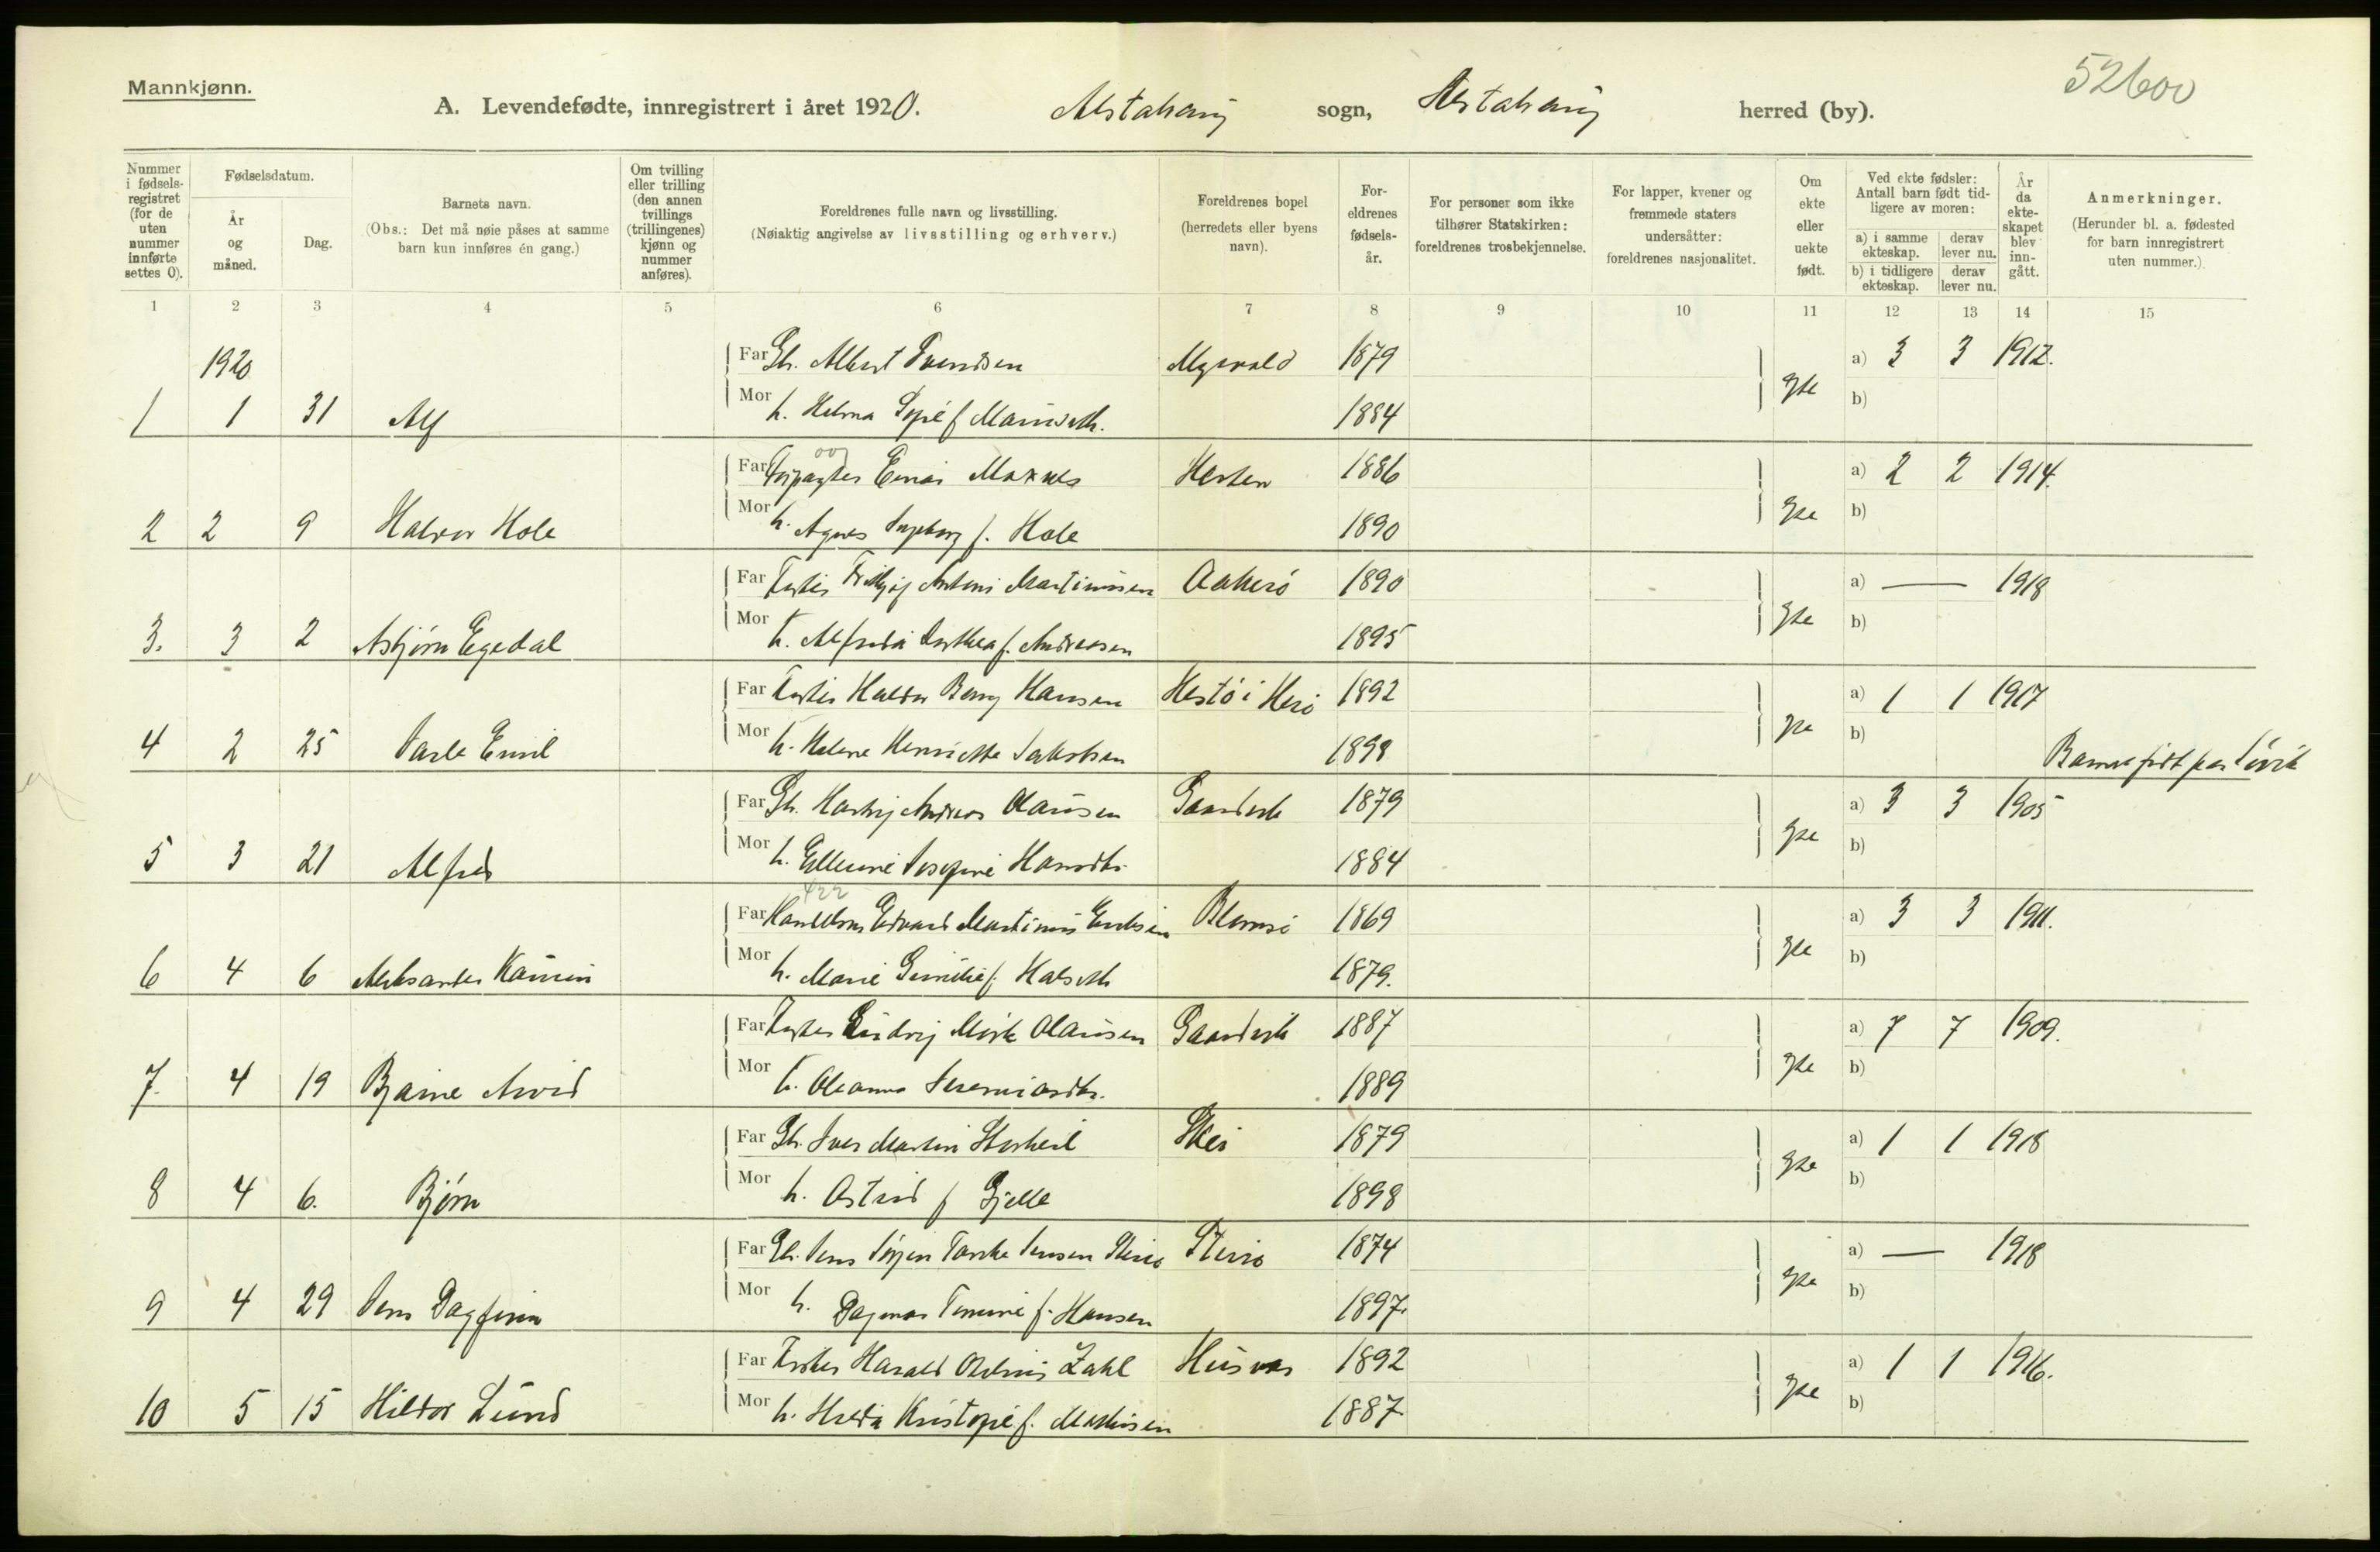 Mannkjønn.
52600
A. Levendefødte, innregistrert i året 1920. Alstahaug sogn, Alstahaug herred (by).
Nummer i fødsels-registret (for de uten nummer innførte settes 0).
Fødselsdatum.
År og måned.
Dag.
Barnets navn.
(Obs.: Det må nøie påses at samme barn kun innføres én gang.)
Om tvilling eller trilling (den annen tvillings (trillingenes) kjønn og nummer anføres).
Foreldrenes fulle navn og livsstilling.
(Nøiaktig angivelse av livsstilling og erhverv.)
Foreldrenes bopel (herredets eller byens navn).
For-eldrenes fødsels-år.
For personer som ikke tilhører Statskirken: foreldrenes trosbekjennelse.
For lapper, kvener og fremmede staters undersåtter: foreldrenes nasjonalitet.
Om ekte eller uekte født.
Ved ekte fødsler: Antall barn født tid-ligere av moren:
a) i samme ekteskap.
derav lever nu.
b) i tidligere ekteskap.
derav lever nu.
År da ekte-skapet blev inn-gått.
Anmerkninger.
(Herunder bl. a. fødested for barn innregistrert uten nummer.)
1 2 3 4 5 6 7 8 9 10 11 12 13 14 15
1920
Far Gbr. Albert Svendsen 1879 a) 3 3 1912.
1 1 31 Alf Mor h. Helma f 1884 gte b)
Far Forpagter Einar Maxnes 1886 a) 2 2 1914.
2 2 9 Halvor Hole Mor h. Agnes Ingeborg f. Hole 1890 b)
Far Fisker Fridtjof Antoni Martinussen 1890 a) — 1918
3. 3 2 Asbjørn Egedal Mor h. Alfrida Dorthea f. Andreasen 1895 b)
Far Fisker Haldor Berg Hansen Hestø i Herø 1892 a) 1 1 1917
4 2 25 Jarle Emil Mor h. Helene Henriette Jakobsen 1898 b) Barnet født paa Søvik
Far Gbr. Hartvig Andreas Olausen 1879 a) 3 3 1905
5 3 21 Alfred Mor h. Ellevine Josefine Hansdtr. 1884 b)
422
Far Edvard Martinus Blomsø 1869 a) 3 3 1911.
6 4 6 Aleksander Mor h. Marie f. Halseth 1879. b)
Far Fisker Ludvig Mørk Olausen 1887 a) 7 7 1909.
7. 4 19 Bjarne Arvid Mor h. Oleanna Jeremiasdtr. 1889 b)
Far Gbr. Iver Martin 1879 a) 1 1 1918
8 4 6. Bjørn Mor h. Astrid f Gjelle 1898 b)
Far Gbr. Jens Jørgen Jensen 1874 a) — 1918
9 4 29 Jens Dagfinn Mor h. Dagmar f. Hansen 1897. b)
Far Fisker Harald Zahl Husvær 1892 a) 1 1 1916.
10 5 15 Hildor Lund Mor h. f. 1887 b)